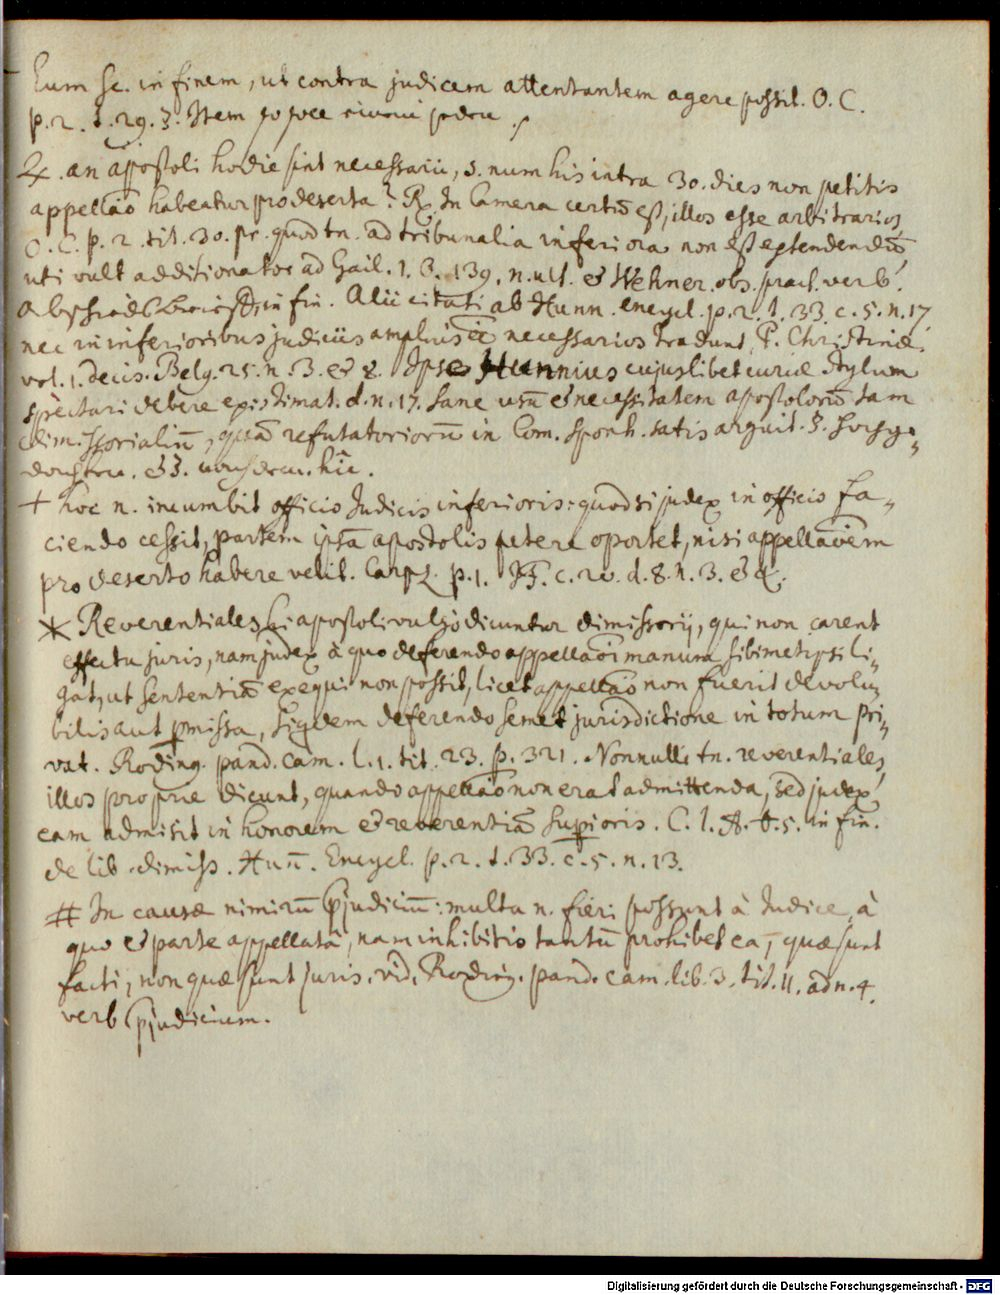 Eum sc. in finem, ut contra judicem attentantem agere possit. O. C.
p. 2. t. 29. §. Item
an apostoli hodie sint necessarii, s. num his intra 30. dies non petitis
appellaõ habeatur pro deserta? R. In Camera certũ est, illos esse arbitrarios,
O. C. p. 2. tit. 30. pr. quod tn. ad tribunalia inferiora non est extendendũ,
uti vult additionator ad Gail. 1. O. 139. n. ult. & Wehner. obs. pract. verb.
in fin. Alii citati ab Hunn. encycl. p. 2. t. 33. c. 5. n. 17.
nec in inferioribus judiciis amplius necessarios tradunt, P. Christinæ.
vol. 1. decis. Belg. 25. n. 3. & 8. Ipse Hunnius cujuslibet curiæ stylum
spectari debere existimat. d. n. 17. Sane usũ & necessitatem apostolorũ tam
dimissorialiũ, quã refutatoriorũ in Com. Sponh. satis arguit. §.
& §. hîc.
+ hoc n. incumbit officio Judicis inferioris: quod si judex in officio fa-
ciendo cessit, partem ipsã apostolis petere oportet, nisi appellaõem
pro deserto habere velit. Carpz. p. 1. d. 8. n. 3.
* Reverentiales hi apostoli vulgò dicuntur dimissorij, qui non carent
effectu juris, nam judex à quo deferendo appellaõi manum sibimetipsi li-
gat, ut sententiã exequi non possit, licet appellaõ non fuerit devolu-
bilis aut pmissa, siqdem deferendo semet jurisdictione in totum pri-
vat. Roding. pand. cam. l. 1. tit. 23. p. 321. Nonnulli tn. reverentiales
illos proprie dicunt, quando appellaõ non erat admittenda, sed judex
eam admisit in honorem & reverentiã supioris. C. 1. A. t. 5. in fin.
de lib. dimiss. Huñ. Encycl. p. 2. t. 33. c. 5. n. 13.
# In causæ nimirũ pjudiciũ: multa n. fieri possunt à Judice, à
quo & parte appellatâ, nam inhibitio tantũ prohibet ea, quæ sunt
facti, non quæ sunt juris. vid. Roding. pand. cam. lib. 3. tit. 11. ad n. 4.
verb pjudicium.
Digitalisierung gefördert durch die Deutsche Forschungsgemeinschaft - DFG